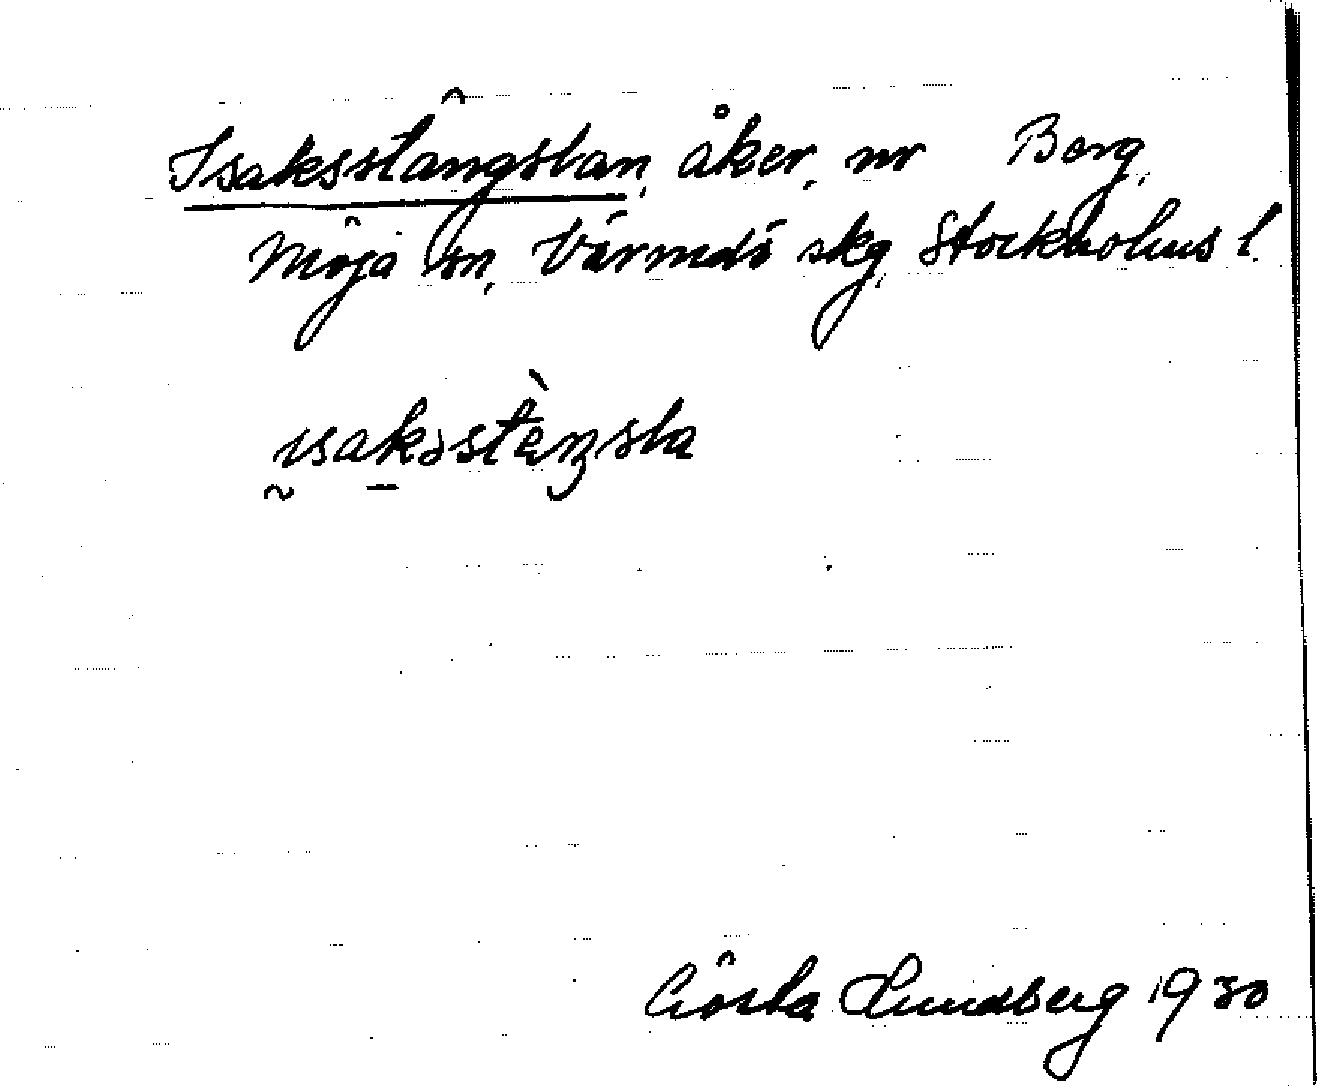 Isaksstängstan, åker, nr Berg,
Möja sn, Värmdö skg, Stockholms l.
ɪsakəstɛ̀ŋsta
Gösta Lundberg 1930